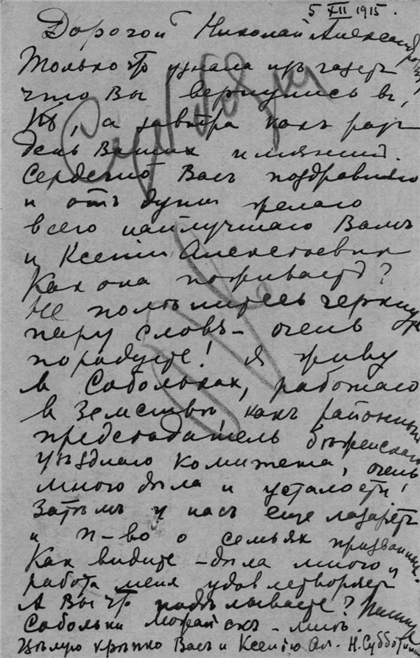 5 XII 1915.
Дорогой Николай Алексан
Только что узнала изъ газетъ
что Вы вернулись въ
а завтра какъ разъ
день Вашихъ имянинъ.
Сердечно Васъ поздравляю
и отъ души желаю
всего наилучшаго Вамъ
и Ксеніи Алексеевнѣ
Какъ она поживаетъ?
Не полѣнитесь черкнуть
пару словъ – очень
порадуете! Я живу
въ Собольках, работаю
въ Земствѣ какъ районный
председатель
уѣзднаго Комитета, очень
много дѣла и усталости!
Затѣмъ у насъ еще лазаретъ
и п-во о семьях призванныхъ
Какъ видите – дѣла много и
работа меня удовлетворяет
А Вы что подѣлываете?
Собольки
Цѣлую крѣпко Васъ и Ксенію Ал. Н. Суббот